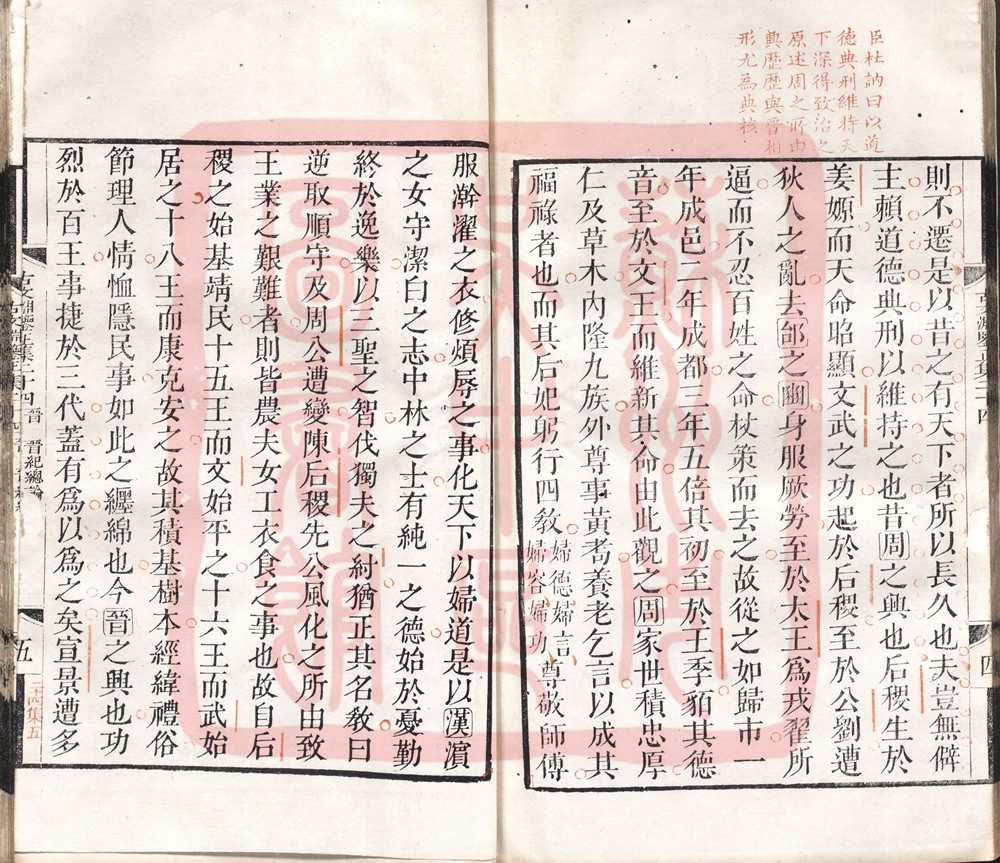 臣杜訥曰以道
德典刑維持天
下深得致治之
原述周之所由
興歷歷與晉相
形尤為典核
則不遷是以昔之有天下者所以長久也夫豈無僻
主賴道德典刑以維持之也昔周之興也后稷生於
姜嫄而天命昭顯文武之功起於后稷至於公劉遭
狄人之亂去邰之豳身服厥勞至於太王爲戎翟所
逼而不忍百姓之命杖策而去之故從之如歸市一
年成邑二年成都三年五倍其初至於王季貊其德
音至於文王而維新其命由此觀之周家世積忠厚
仁及草木内隆九族外尊事黃耇養老乞言以成其
福祿者也而其后妃躬行四教婦德婦言婦容婦功尊敬師傅
四
服澣濯之衣修煩辱之事化天下以婦道是以漢濵
之女守潔白之志中林之士有純一之德始於憂勤
終於逸樂以三聖之智伐獨夫之紂猶正其名教曰
逆取順守及周公遭變陳后稷先公風化之所由致
王業之艱難者則皆農夫女工衣食之事也故自后
稷之始基靖民十五王而文始平之十六王而武始
居之十八王而康克安之故其積基樹本經緯禮俗
節理人情恤隱民事如此之纒綿也今晉之興也功
烈於百王事捷於三代蓋有爲以爲之矣宣景遭多
晉 晉紀總論
五
二十四集五